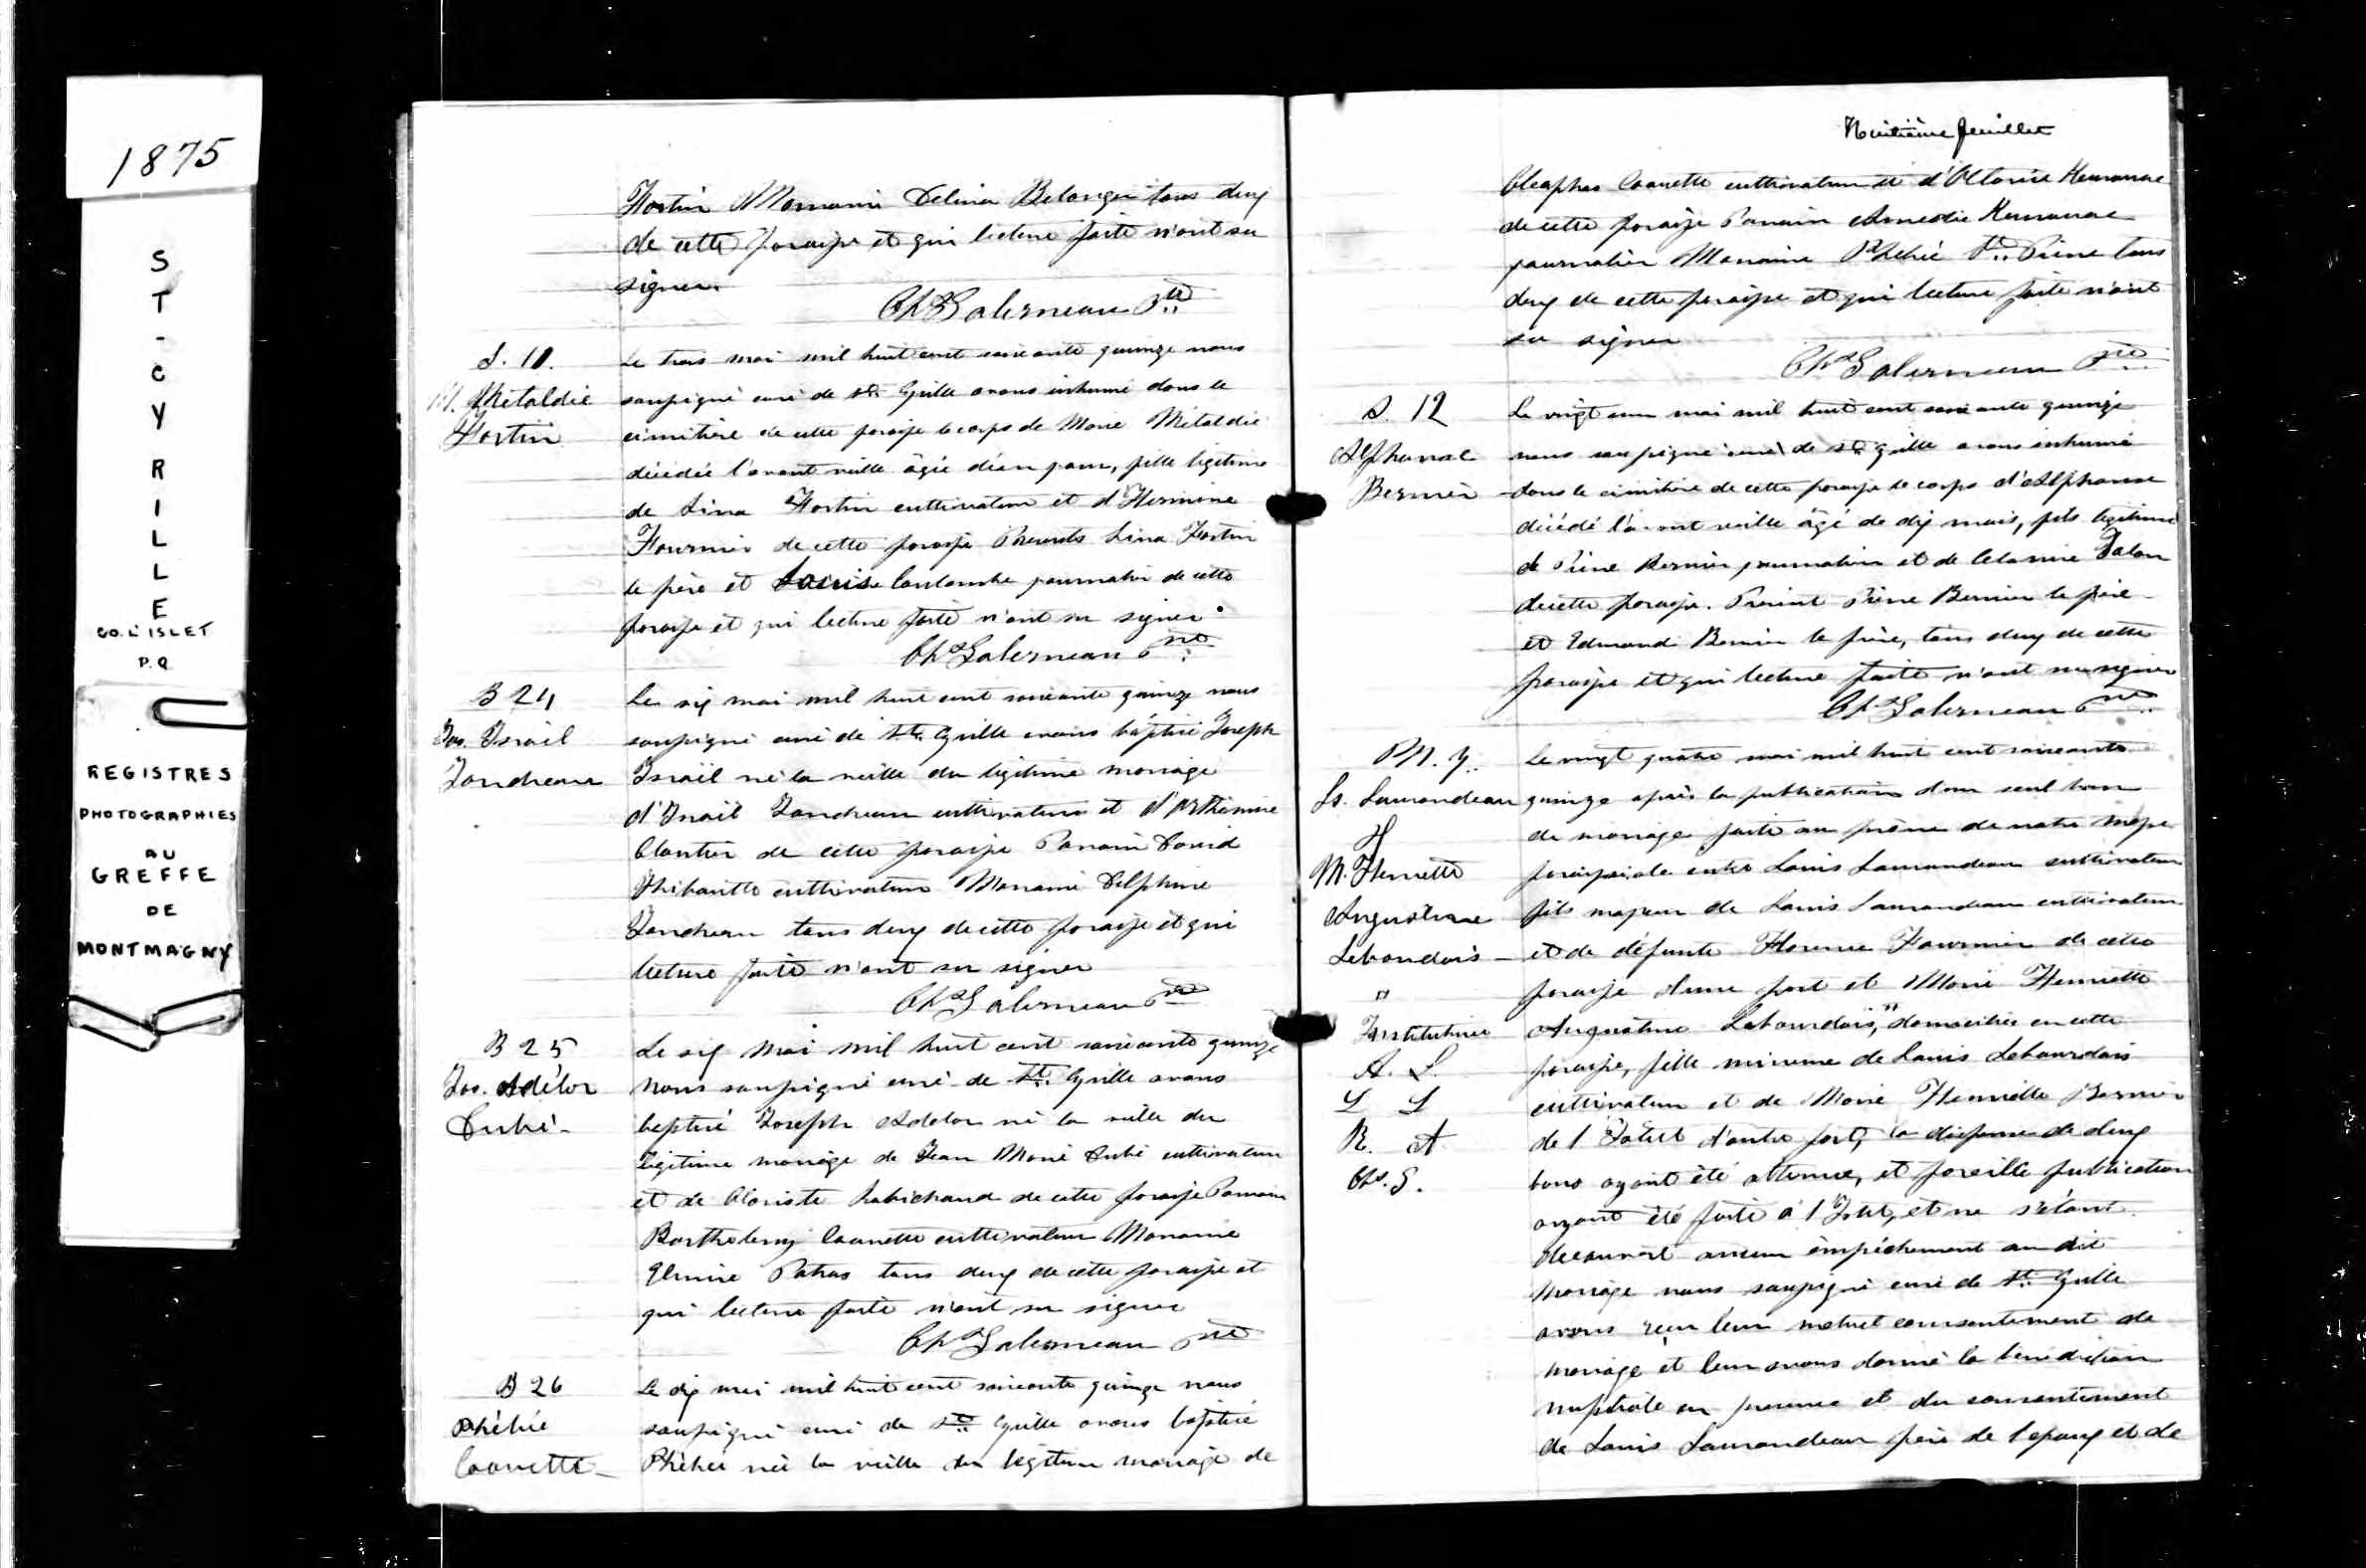 1875
ST-CYRILLE
CO. L'ISLET
P.Q
REGISTRES
PHOTOGRAPHIES
AU
GREFFE
DE
MONTMAGNY
Fortin Marraine Delina Belanger tous deux
de cette paroisse et qui lecture faite n'ont su
signer.
Chs Galerneau Ptre
S. 11.
M. Mitaldie
Fortin
Le trois mai mil huit cent soixante quinze nous
soussigné curé de St. Cyrille avons inhumé dans le
cimitière de cette paroisse le corps de Marie Mitaldie
décédée l'avant veille âgée d'un jour, fille légitime
de Lina Fortin cultivateur et d'Hermine
Fournier de cette paroisse Presents Lina Fortin
le père et Louis Coulombe journalier de cette
paroisse et qui lecture faite n'ont su signer
Chs Galerneau Ptre
B 24
Jos. Israël
Jandreau
Le six mai mil huit cent soixante quinze nous
soussigné curé de St. Cyrille avons baptisé Joseph
Israël né la veille du légitime mariage
d'Israël Jandreau cultivateur et d'Arthémise
Cloutier de cette paroisse Parrain David
Thibautte cultivateur Marraine Delphine
Jandreau tous deux de cette paroisse et qui
lecture faite n'ont su signer
Chs Galerneau Ptre
B 25
Jos. Adélor
Dubé
Le six mai mil huit cent soixante quinze
nous soussigné curé de St. Cyrille avons
baptisé Joseph Adelor né la veille du
légitime mariage de Jean Marie Dubé cultivateur
et de Cloriste Robichaud de cette paroisse Parrain
Barthelemy Caouette cultivateur Marraine
Elmire Patras tous deux de cette paroisse et
qui lecture faite n'ont su signer
Chs Galerneau Ptre
B 26
Phébée
Caouette
Le dix mai mil huit cent soixante quinze nous
soussigné curé de St. Cyrille avons baptisé
Phébée née la veille du légitime mariage de
Huitième feuillet
Cleophas Caouette cultivateur et d'Octavie
de cette paroisse Parrain Amedie
journalier Marraine Phébée St. Pierre tous
deux de cette paroisse et qui lecture faite n'ont
su signer
Chs Galerneau Ptre
S. 12
Alphonse
Bernier
Le vingt un mai mil huit cent soixante quinze
nous soussigné curé de St. Cyrille avons inhumé
dans le cimitière de cette paroisse le corps d'Alphonse
décédé l'avant veille âgé de dix mois, fils légitime
de Pierre Bernier journalier et de Celanire
de cette paroisse. Présent Pierre Bernier le père
et Edmond Bernier le frère, tous deux de cette
paroisse et qui lecture faite n'ont su signer
Chs Galerneau Ptre
M.
Ls. Lamondeau
&
M. Henriette
Augustine
Lebourdais
"
Institutrice
A. L.
L L
R. A
Chs. G.
Le vingt quatre mai mil huit cent soixante
quinze après la publication d'un seul ban
de mariage faite au prône de notre messe
paroissiale entre Louis Lamondeau cultivateur
fils majeur de Louis Lamondeau cultivateur
et de défunte Florence Fournier de cette
paroisse d'une part et Marie Henriette
Augustine Lebourdais, " domiciliée en cette
paroisse, fille mineure de Louis Lebourdais
cultivateur et de Marie Henriette Bernier
de l'Islet d'autre part, la dispense de deux
bans ayant été obtenue, et pareille publication
ayant été faite à l'Islet, et ne s'étant
découvert aucun empêchement au dit
mariage nous soussigné curé de St. Cyrille
avons reçu leur mutuel consentement de
mariage et leur avons donné la bénédiction
nuptiale en présence et du consentement
de Louis Lamondeau père de l'epoux et de